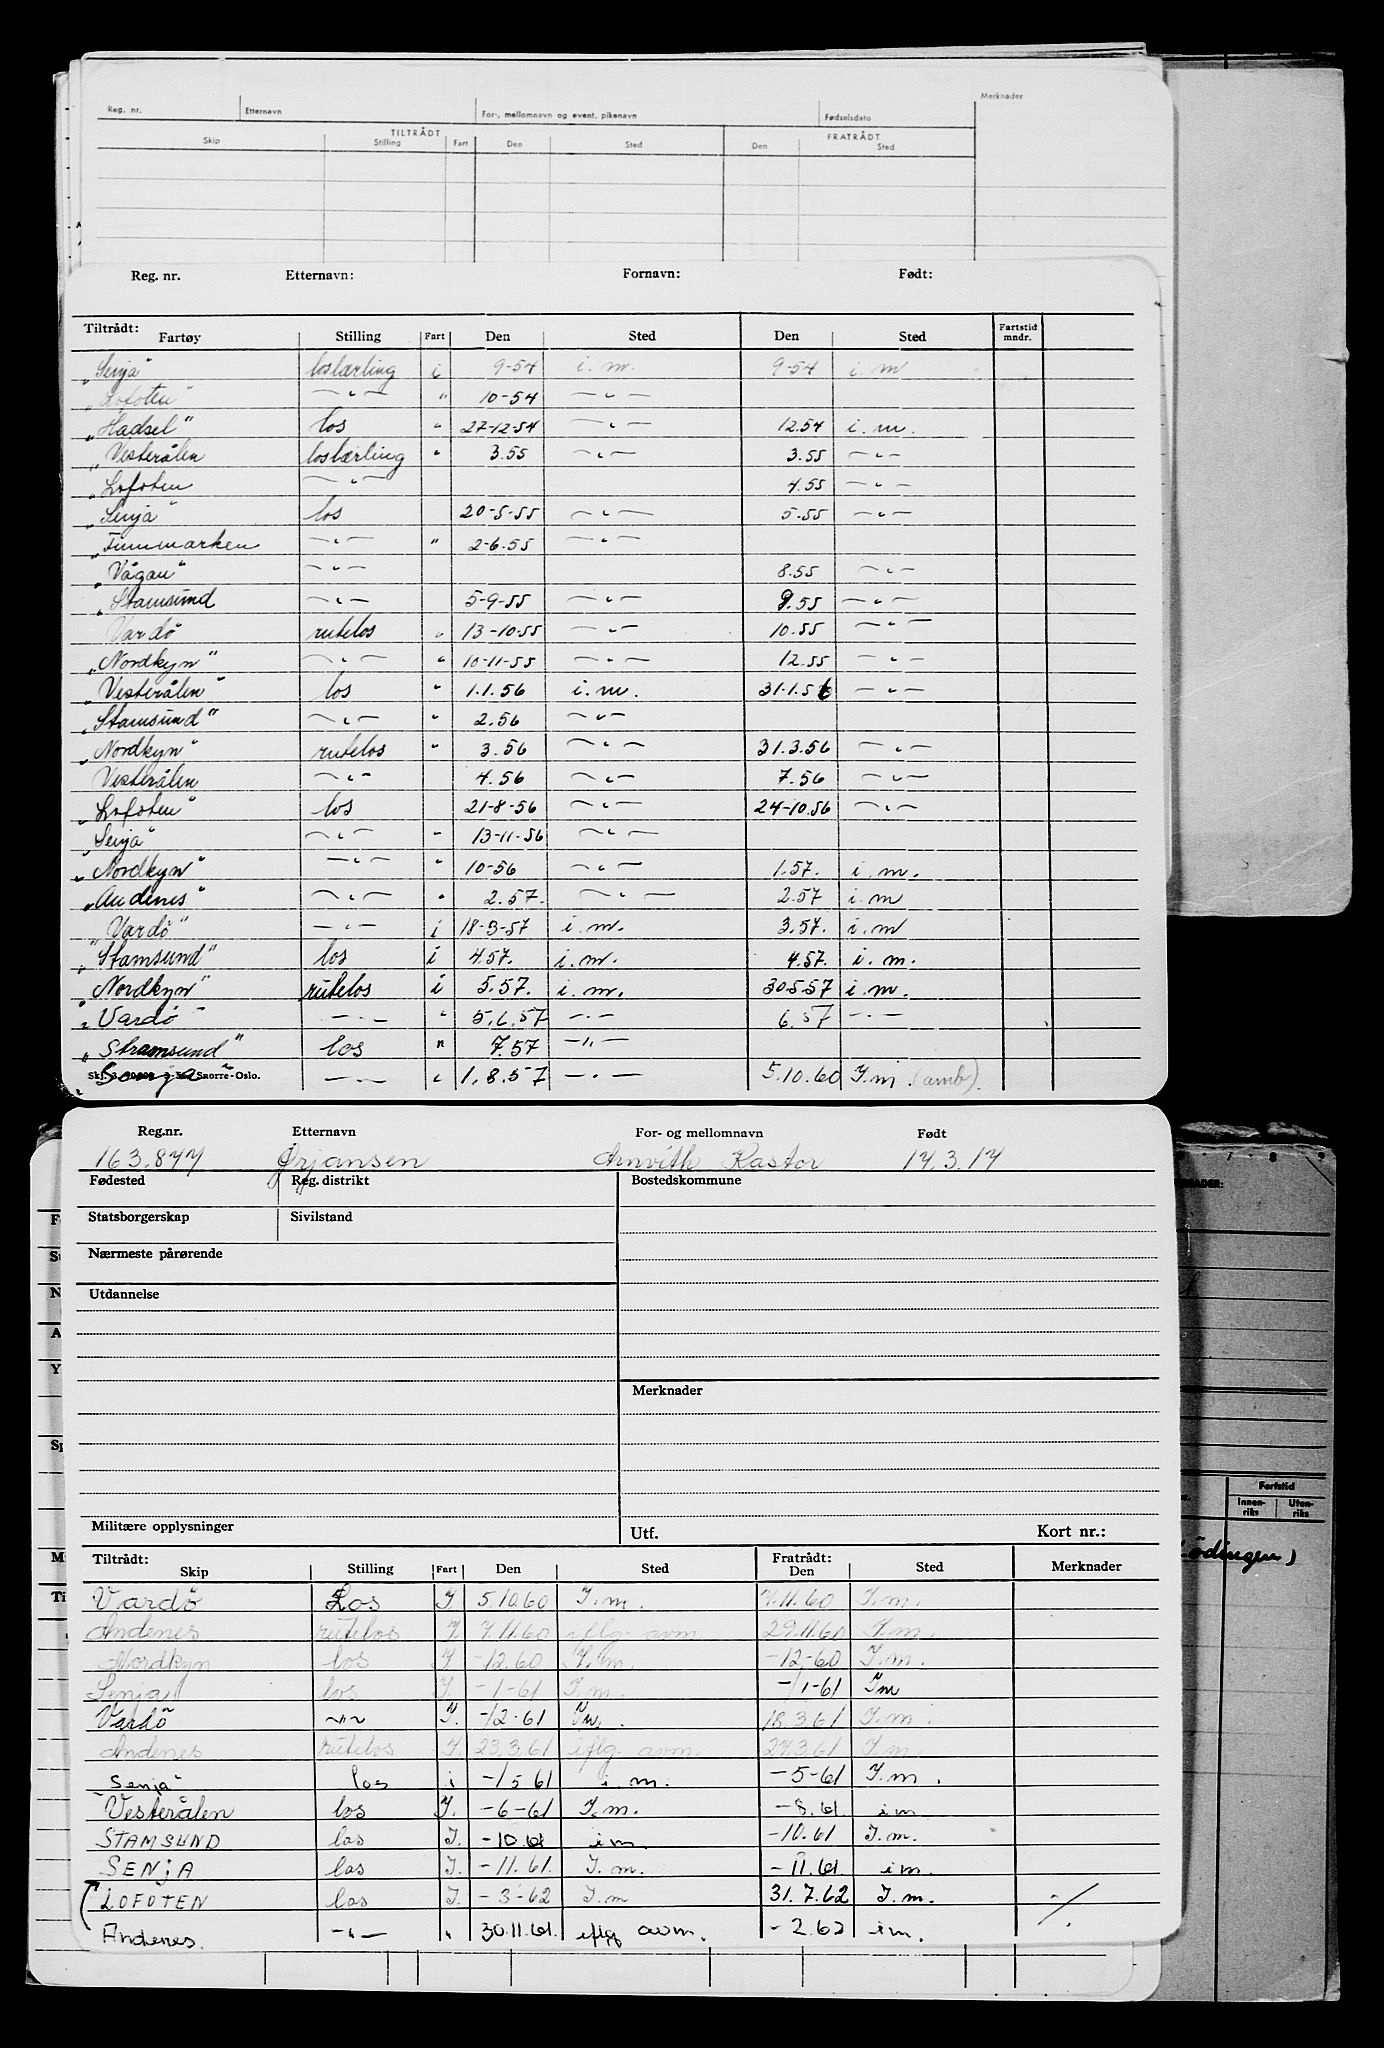 Reg. nr. Etternavn For-, mellomnavn og event. pikenavn Fødselsdato Merknader
TILTRÅDT FRATRÅDT
Skip Stilling Fart Den Sted Den Sted
Reg. nr. Etternavn: Fornavn: Født:
Tiltrådt: Fartøy Stilling Fart Den Sted Den Sted Fartstid mndr.
"Senja" loslærling i 9-54 i. m. 9-54 i. m
"Lofoten" —"— " 10-54 —"—
"Hadsel" los " 27-12-54 —"— 12.54 i. m.
"Vesterålen loslærling " 3.55 —"— 3.55 —"—
"Lofoten —"— 4.55 —"—
"Senja" los 20-5-55 —"— 5.55 —"—
"Finnmarken —"— " 2-6.55 —"—
"Vågan" —"— 8.55 —"—
"Stamsund —"— 5-9-55 —"— 9.55 —"—
Vardö rutelos " 13-10-55 —"— 10.55 —"—
"Nordkyn" —"— " 10-11-55 —"— 12.55 —"—
"Vesterålen" los " 1.1.56 i. m. 31.1.56 —"—
"Stamsund" —"— " 2.56 —"—
"Nordkyn" rutelos " 3.56 —"— 31.3.56 —"—
Vesterålen —"— 4.56 —"— 7.56 —"—
"Lofoten" los 21-8-56 —"— 24-10.56 —"—
"Senja" —"— " 13-11-56 —"—
"Nordkyn" —"— " 10-56 —"— 1.57. i. m.
"Andenes" —"— " 2.57. —"— 2.57 i. m
"Vardö" —"— i 18-3-57 i. m. 3.57. i. m
"Stamsund" los i 4.57. i. m. 4.57. i. m.
"Nordkyn" rutelos i 5.57. i. m. 30.5.57 i. m.
"Vardö" —"— " 5.6.57 —"— 6.57 —"—
"Stramsund" los " 7.57 —"—
"Senja" —"— " 1.8.57 —"— 5.10.60 I.m. (amb).
Snorre-Oslo.
Reg.nr. Etternavn For- og mellomnavn Født
163.877 Ørjansen Arnvith Kastor 17.3.17
Fødested Reg. distrikt Bostedskommune
Statsborgerskap Sivilstand
Nærmeste pårørende
Utdannelse
Merknader
Militære opplysninger Utf. Kort nr.:
Tiltrådt: Skip Stilling Fart Den Sted Fratrådt: Den Sted Merknader
Vardö Los I 5.10.60 I.m. 7.11.60 I.m.
Andenes rutelos I 7.11.60 iflg. avm 29.11.60 I.m.
Nordkyn los I -12.60 I.m -12-60 I.m.
Senja los I -1-61 I.m. -1-61 Im
Vardö —"— I. -12-61 Im. 18.3.61 I.m.
Andenes rutelos I. 23.3.61 iflg. avm. 27.3.61 I.m
Senja los i -15 61 i. m. -5-61 I.m.
Vesterålen los I. -6-61 I.m. -8.61 im
STAMSUND los I. -10.61 im. -10.61 I.m.
SENjA los I. -11.61. I.m. -11.61. im.
LOFOTEN los I. -3-62 I.m 31.7.62 I.m. ./.
Andenes. —"— " 30.11.61. iflg avm. -2.62 im.
7 8 9
Fartstid
Innen- riks Uten- riks
Lödingen)